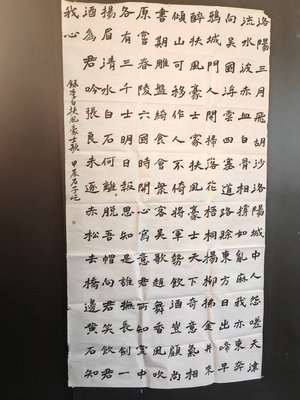 洛陽三月飛胡沙洛陽城中人怨嗟天津
流水波赤血白骨相撐如亂麻我亦東奔
向吳國浮雲四塞道路賒東方日出啼早
鴉城門人開掃落花梧桐楊柳拂金井來
醉扶風豪士家扶風豪士天下奇意氣相
傾山可移作人不倚將軍勢飲酒豈顧尚
書期雕盤綺食會眾客吳歌趙舞香風吹
原嘗春陵六國時開心寫意君所知堂中
各有三千士明日報恩知是誰撫長劍一
揚眉清水白石何離離脫吾帽向君笑飲君
酒為君吟張良未逐赤松去橋邊黃石知
我心
錄李白扶風豪士歌 甲辰